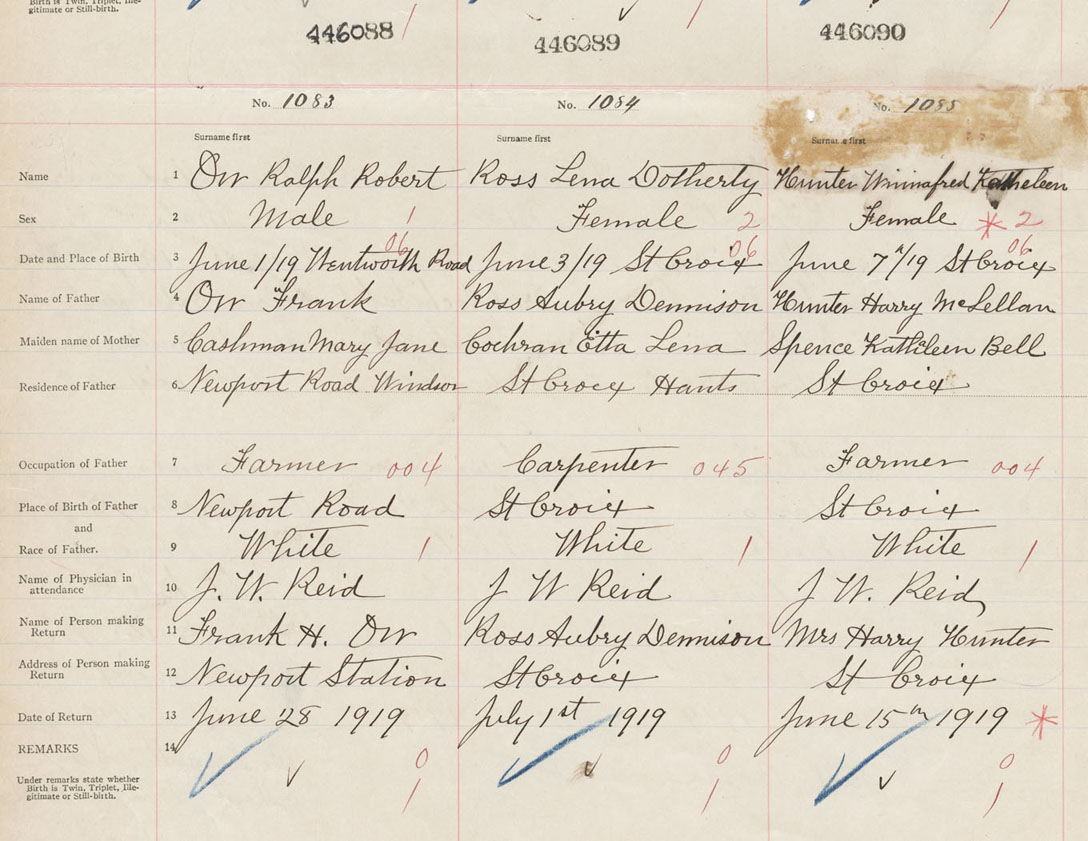 Birth is Twin, Triplet, Ille-
gitimate or Still-birth.
1
446088 446089 446090
No. 1083 No. 1084 No. 1085
Surname first Surname first Surname first
Name 1 Orr Ralph Robert Ross Lena Dotherty Hunter Winnafred Katheleen
Sex 2 Male 1 Female 2 Female * 2
06 06 06
Date and Place of Birth 3 June 1/19 Wentworth Road June 3/19 St Croix June 7th/19 St Croix
Name of Father 4 Orr Frank Ross Aubry Dennison Hunter Harry McLellan
Maiden name of Mother 5 Cashman Mary Jane Cochran Etta Lena Spence Kathleen Bell
Residence of Father 6 Newport Road Windsor St Croix Hants St Croix
Occupation of Father 7 Farmer 004 Carpenter 045 Farmer 004
Place of Birth of Father 8 Newport Road St Croix St Croix
and
Race of Father. 9 White 1 White 1 White 1
Name of Physician in
attendance 10 J. W. Reid J W Reid J W. Reid
Name of Person making
Return 11 Frank H. Orr Ross Aubry Dennison Mrs Harry Hunter
Address of Person making
Return 12 Newport Station St Croix St Croix
Date of Return 13 June 28 1919 July 1st 1919 June 15th 1919 *
REMARKS 14 0 0 0
Under remarks state whether
Birth is Twin, Triplet, Ille-
gitimate or Still-birth. 1 1 1